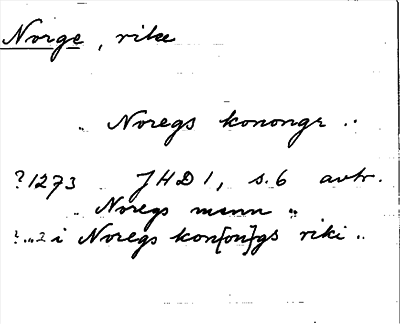 Norge, rike
.. Noregs konongr ..
?1273 JHD 1, s.6 avtr.
.. Noregs menn ..
?..2 i Noregs kon[on]gs riki ..